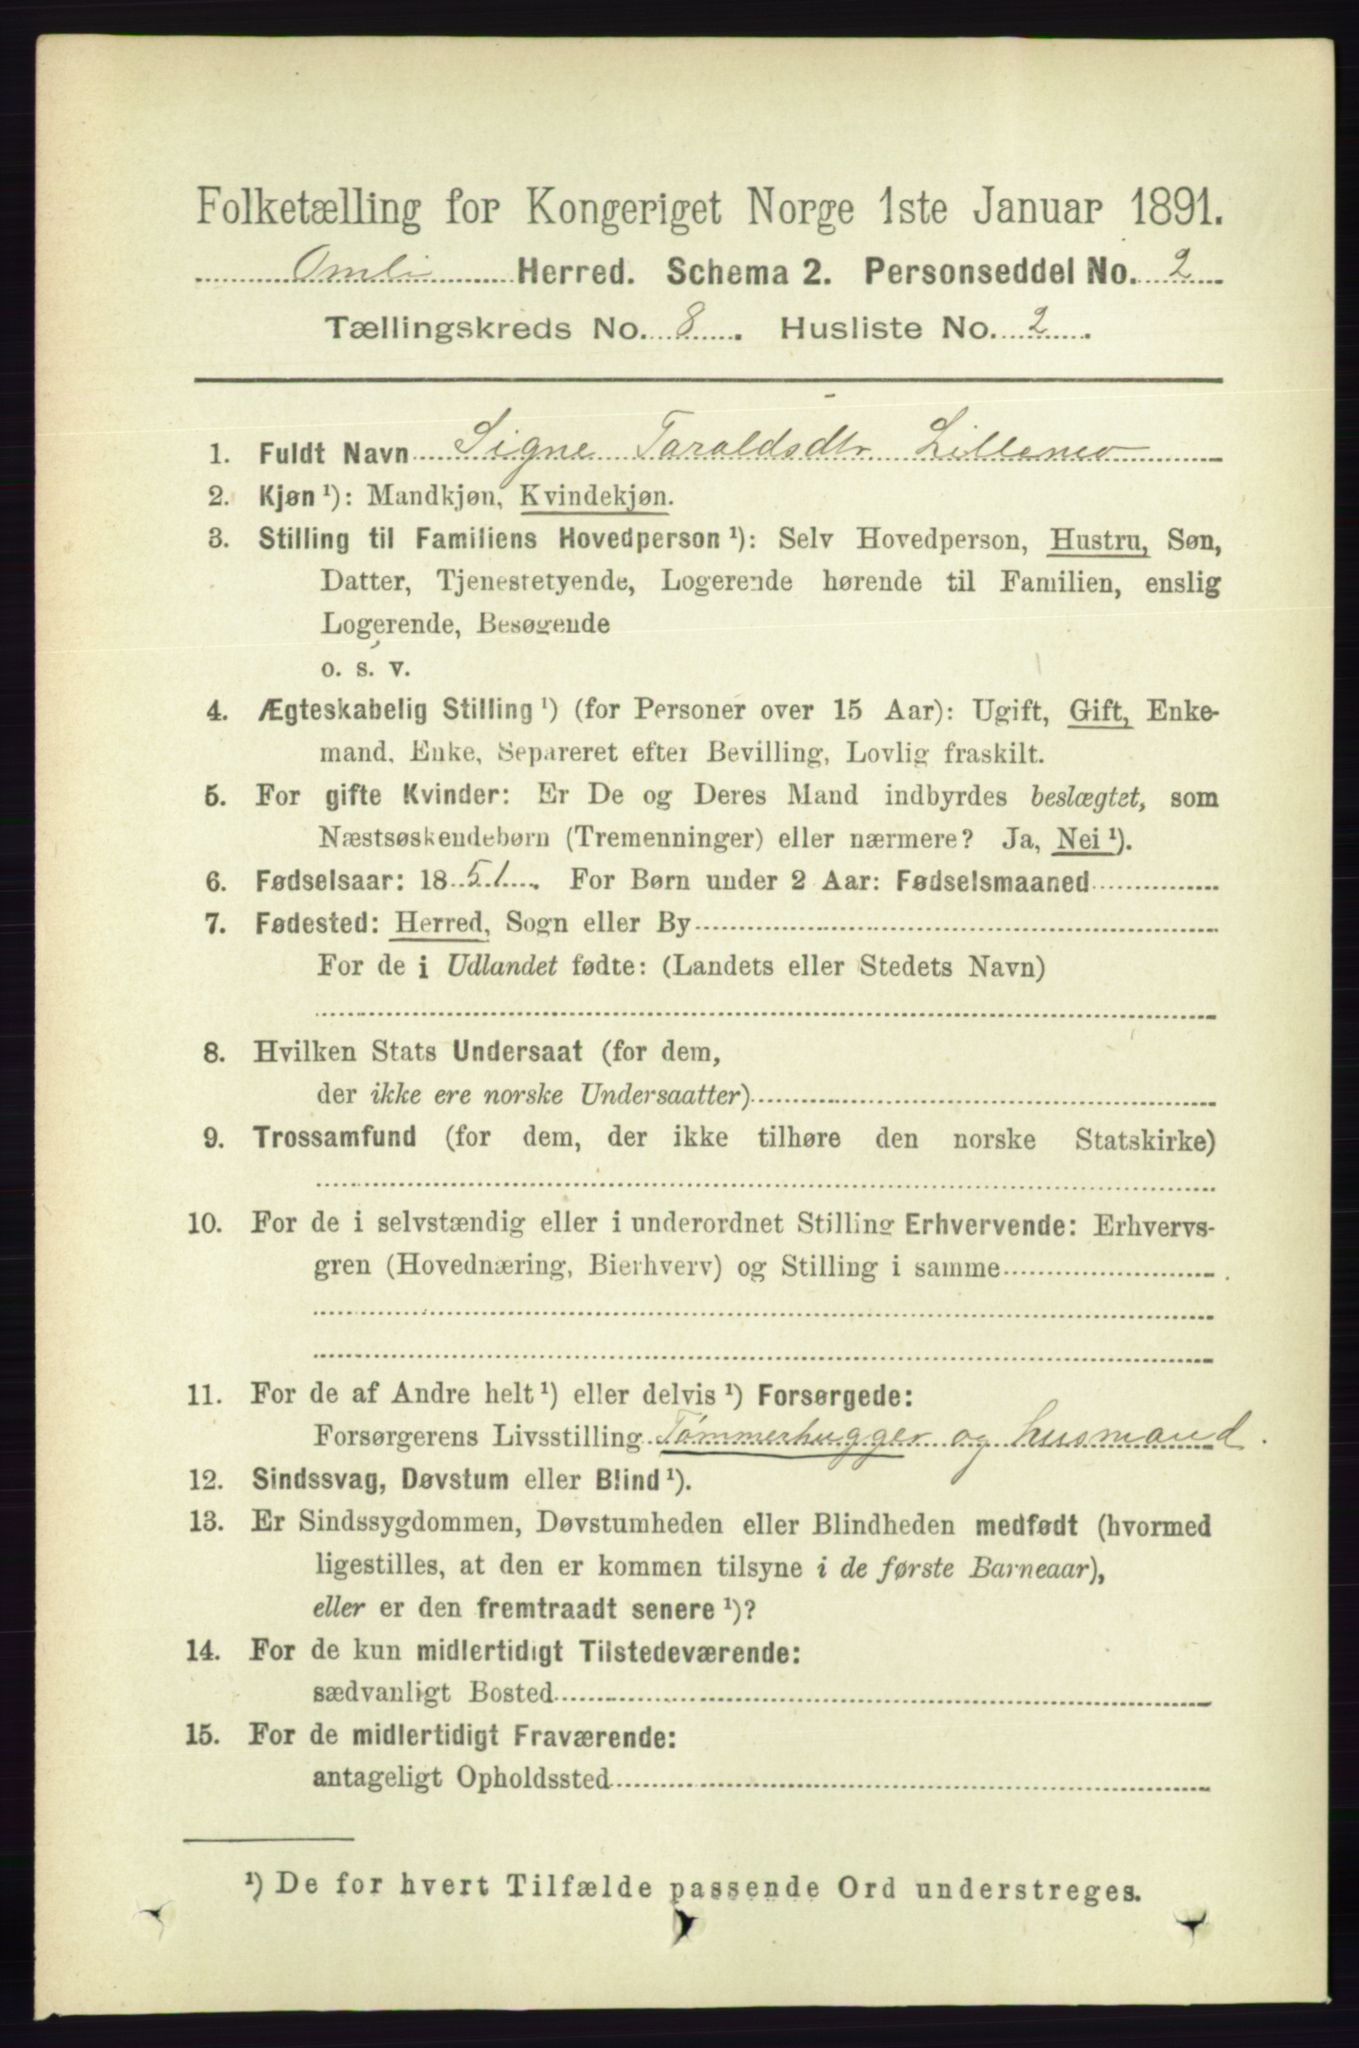 Folketælling for Kongeriget Norge 1ste Januar 1891.
Omli Herred. Schema 2. Personseddel No. 2
Tællingskreds No. 8. Husliste No. 2.
1. Fuldt Navn Signe Taraldsdtr. Lillemo
2. Kjøn ¹): Mandkjøn, Kvindekjøn.
3. Stilling til Familiens Hovedperson ¹): Selv Hovedperson, Hustru, Søn,
Datter, Tjenestetyende, Logerende hørende til Familien, enslig
Logerende, Besøgende
o. s. v.
4. Ægteskabelig Stilling ¹) (for Personer over 15 Aar): Ugift, Gift, Enke-
mand, Enke, Separeret efter Bevilling, Lovlig fraskilt.
5. For gifte Kvinder: Er De og Deres Mand indbyrdes beslægtet, som
Næstsøskendebørn (Tremenninger) eller nærmere? Ja, Nei ¹).
6. Fødselsaar: 1851. For Børn under 2 Aar: Fødselsmaaned
7. Fødested: Herred, Sogn eller By
For de i Udlandet fødte: (Landets eller Stedets Navn)
8. Hvilken Stats Undersaat (for dem,
der ikke ere norske Undersaatter)
9. Trossamfund (for dem, der ikke tilhøre den norske Statskirke)
10. For de i selvstændig eller i underordnet Stilling Erhvervende: Erhvervs-
gren (Hovednæring, Bierhverv) og Stilling i samme
11. For de af Andre helt ¹) eller delvis ¹) Forsørgede:
Forsørgerens Livsstilling Tømmerhugger og husmand.
12. Sindssvag, Døvstum eller Blind ¹).
13. Er Sindssygdommen, Døvstumheden eller Blindheden medfødt (hvormed
ligestilles, at den er kommen tilsyne i de første Barneaar),
eller er den fremtraadt senere ¹)?
14. For de kun midlertidigt Tilstedeværende:
sædvanligt Bosted
15. For de midlertidigt Fraværende:
antageligt Opholdssted
¹) De for hvert Tilfælde passende Ord understreges.